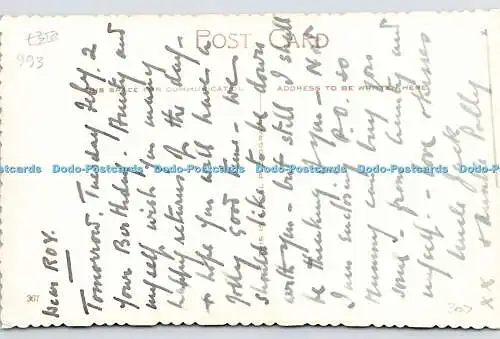 POST CARD
THIS SPACE FOR COMMUNICATION
ADDRESS TO BE WRITTEN HERE
Dear ROY.
Tomorrow. Tuesday Feby. 2
your Birthday. Aunty and
myself wish you many
happy returns of the day -
& hope you will have a
jolly good time - We
should like to be down
with you - but still I shall
be thinking of you - Now
I am enclosing P.O. so
Mummy can buy you
some - from Aunty and
myself love & kisses
Uncle Jack
& Auntie Polly
x x
367
993
307
Dodo-Postcards Dodo-Postcards Dodo-Postcards Dodo-Postcards